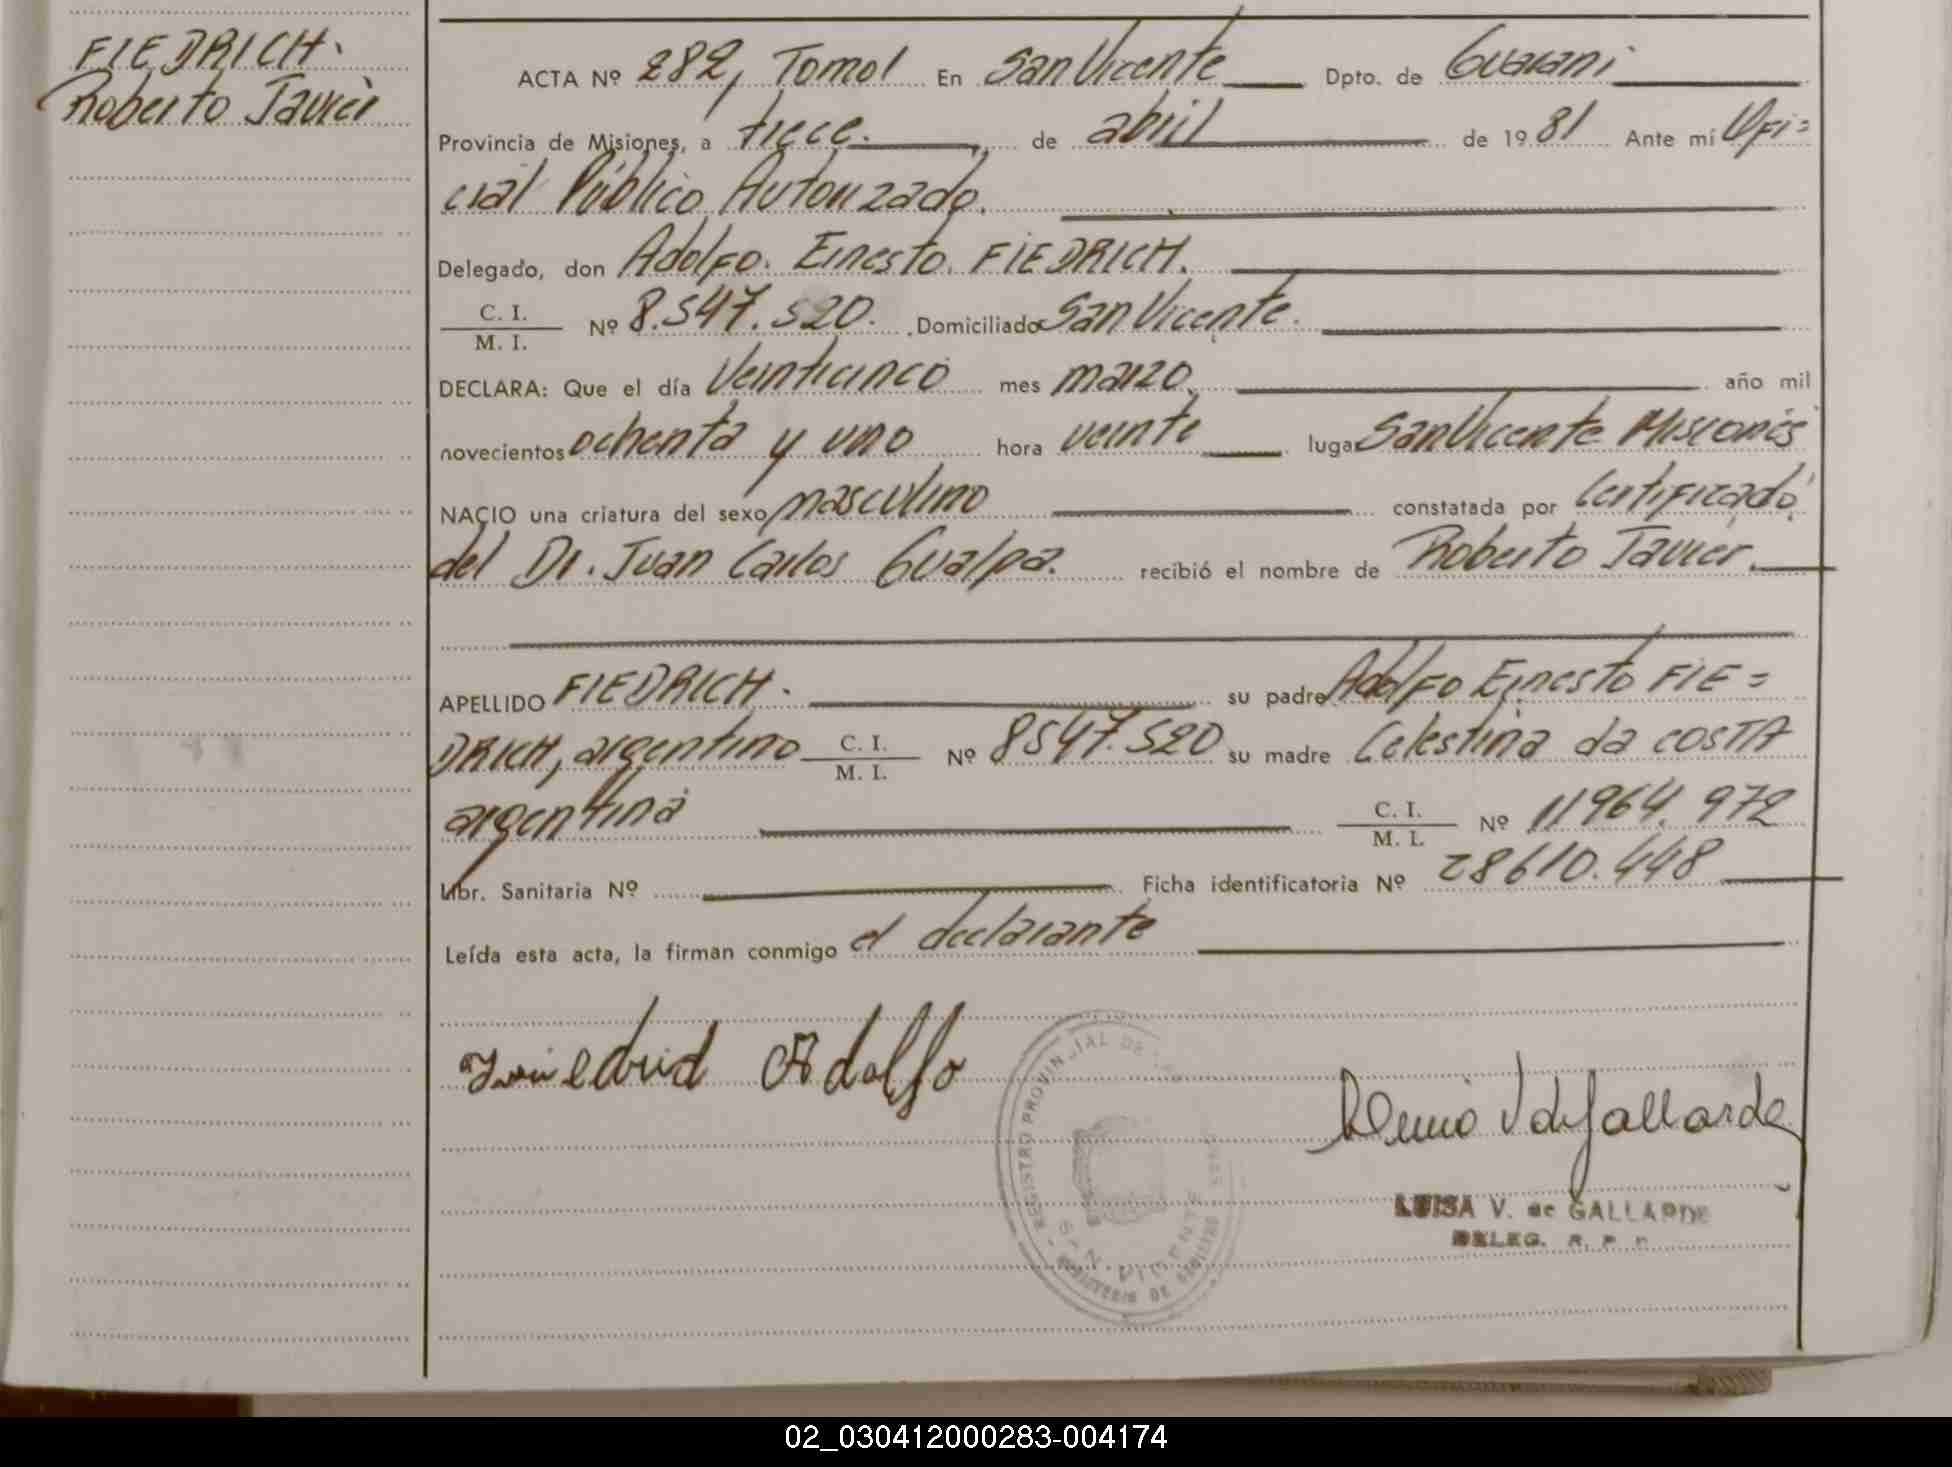 FIEDRICH.
Roberto Javier
ACTA Nº 282, Tomo I En San Vicente Dpto. de Guaraní
Provincia de Misiones, a trece. de abril de 1981 Ante mí Ofi=
cial Público Autorizado.
Delegado, don Adolfo. Ernesto. FIEDRICH.
C. I.
M. I. Nº 8.547.520. Domiciliado San Vicente.
DECLARA: Que el día Veinticinco mes marzo. año mil
novecientos ochenta y uno hora veinte lugar San Vicente Misiones
NACIO una criatura del sexo masculino constatada por Certificado
del Dr. Juan Carlos Gualpa. recibió el nombre de Roberto Javier.
APELLIDO FIEDRICH. su padre Adolfo Ernesto FIE=
DRICH, argentino C. I. M. I. Nº 8547.520 su madre Celestina da COSTA
argentina C. I. M. I. Nº 11964.972
Libr. Sanitaria Nº Ficha identificatoria Nº 28610.448
Leída esta acta, la firman conmigo el declarante
Adolfo
REGISTRO PROVINCIAL DE LAS
SAN VICENTE
LUISA V. de GALLARDE
DELEG. R. P. P.
02_030412000283-004174